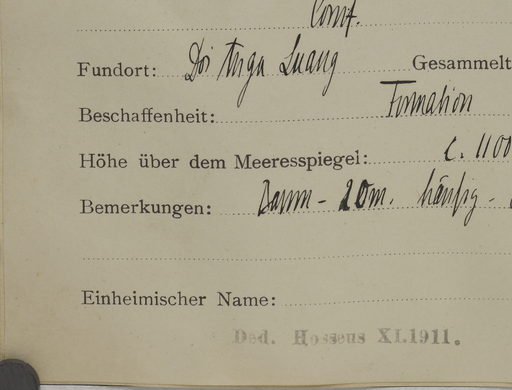 Conf.
Fundort: Doi Anga Luang Gesammelt
Beschaffenheit: Formation
Höhe über dem Meeresspiegel: c. 1100
Bemerkungen: Baum - 20m. häufig -
Einheimischer Name:
Ded. Hosseus XI.1911.